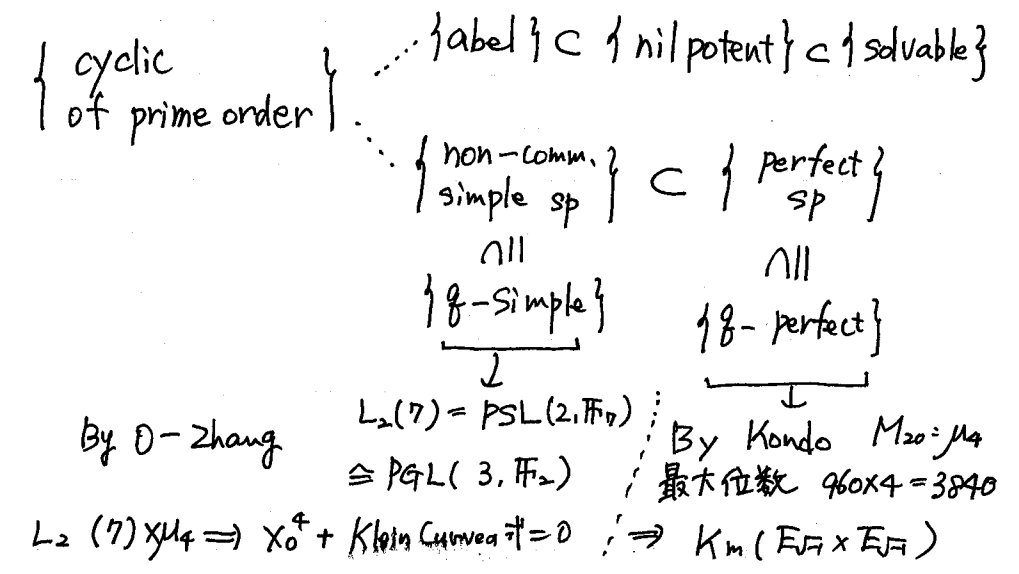 { cyclic of prime order }
{abel} ⊂ {nilpotent} ⊂ {solvable}
{ non-comm. simple sp } ⊂ { perfect sp }
∩||
∩||
{q-Simple}
{q-perfect}
↓
↓
L₂(7) = PSL(2, 𝔽₇)
≅ PGL(3, 𝔽₂)
By O-Zhang
L₂(7)×μ₄ ⇒ X₀⁴ + Klein Curveの式=0
By Kondo M₂₀:μ₄
最大位数 960×4=3840
⇒ Km(E√-1 × E√-1)